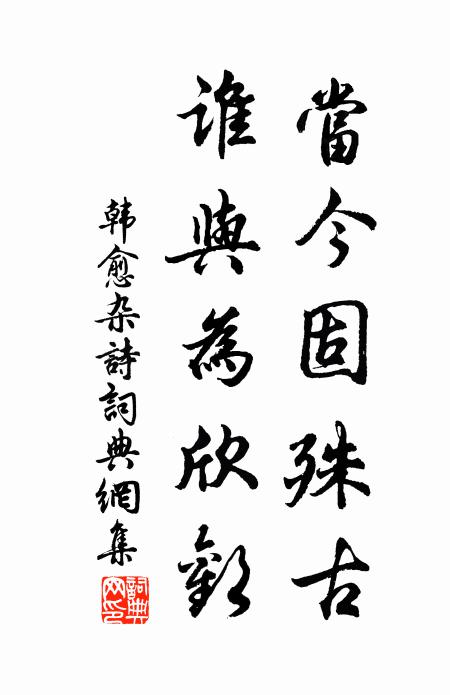 當今固殊古
誰與為欣歡
韩愈杂詩詞典網集
詞典網印